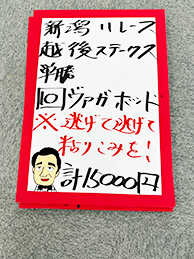 新潟11レース
越後ステークス
単勝
⑩ヴァガボンド
※逃げて逃げて
粘りこみを!
計15000円